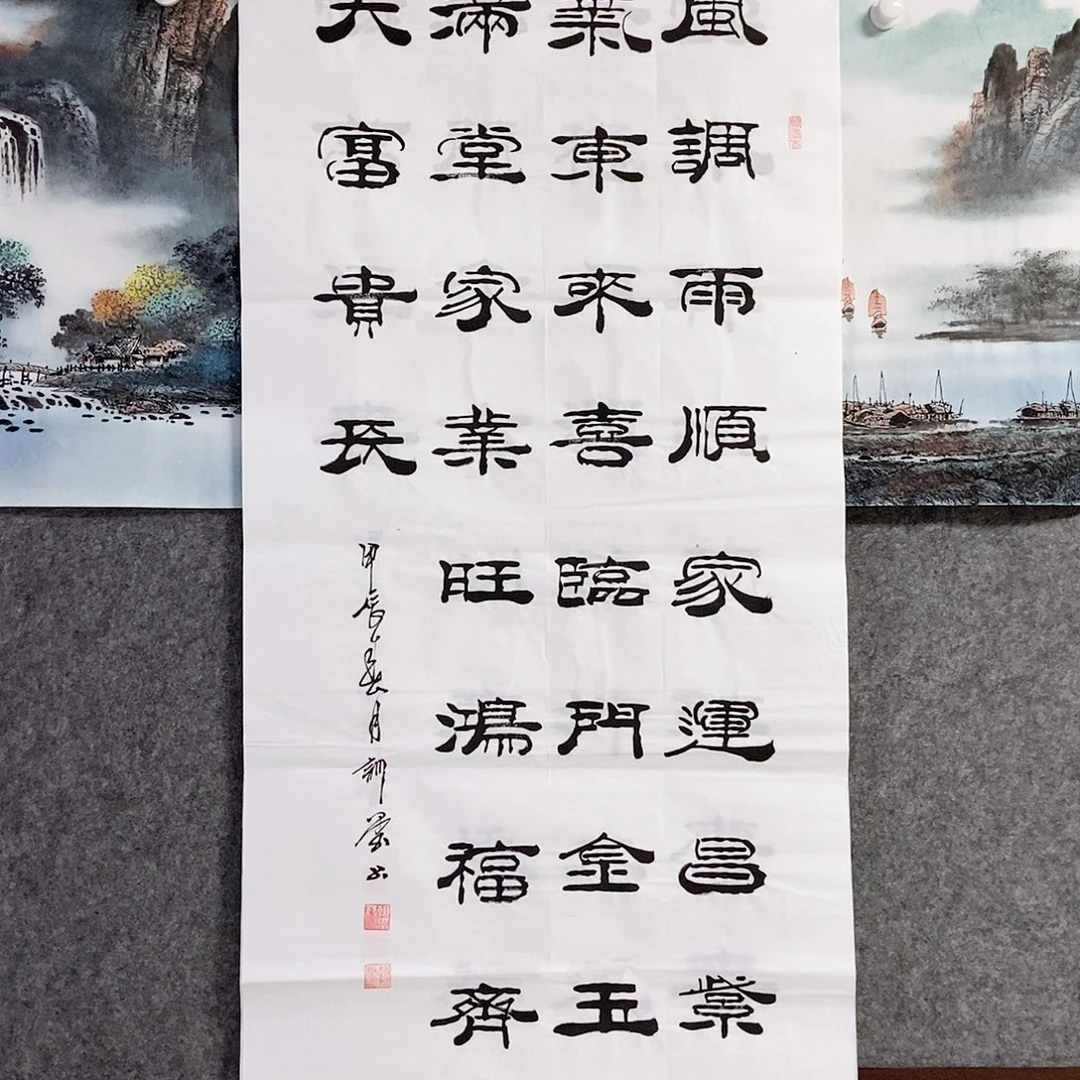 風調雨順家運昌紫
氣東來喜臨門金玉
滿堂家業旺鴻福齊
天富貴長
甲辰春月
書